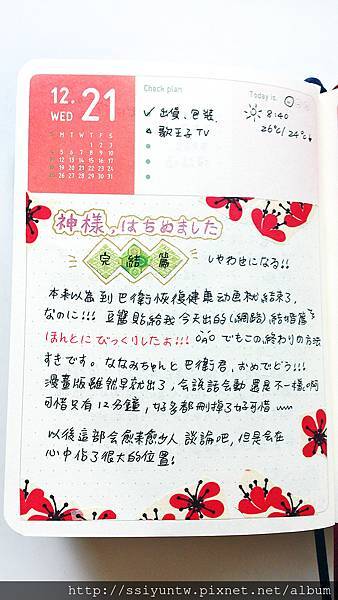 12.
WED
21
Check plan
Today is.
✓ 出優、包裝
▲ 歌王子 TV
8:40
26℃/24℃
神様、はぢめました
完結篇
しやわせになる!!
本來以為到巴衛恢復健康动画就結束了,
なのに!!! 豆豔貼給我今天出的(網路)結婚篇
ほんとにびっくりしたよ!!! OAO でもこの終わりの方法
すきです。ななみちゃんと巴衛君,おめでとう!!!
漫畫版雖然早就出了,会說話会動還是不一樣啊
可惜只有12分鐘,好多都刪掉了好可惜
以後這部会愈來愈少人談論吧,但是会在
心中佔了很大的位置!
http://ssiyuntw.pixnet.net/album